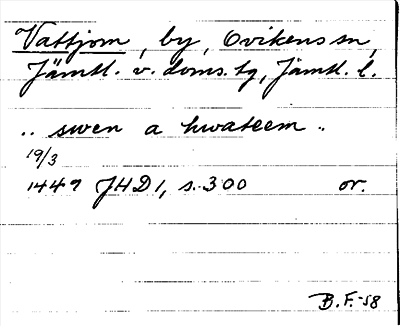 Vattjom, by, Ovikens sn,
Jämtl. v. doms. tg, Jämtl. l.
.. swen a hwateem ..
19/3
1449 JHD 1, s. 300 or.
B.F.-58